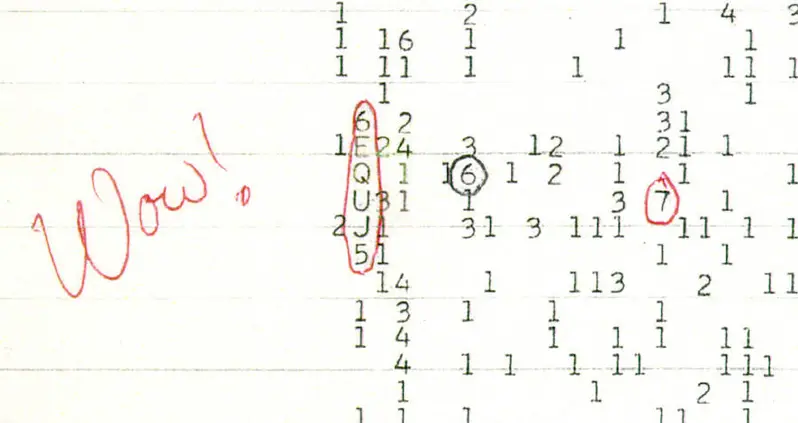 1 2 1 4 3
1 16 1 1 1
1 11 1 1 11 1
1 3 1
6 2 31
1E24 3 12 1 21 1
Q 1 16 1 2 1 1 1
Wow!
U31 1 3 7 1
2J1 31 3 111 11 1 1
51 1 1
14 1 113 2 11
1 3 1 1 1
1 4 1 1 1 11
4 1 1 1 11 111
1 1 2 1
1 1 1 11 1